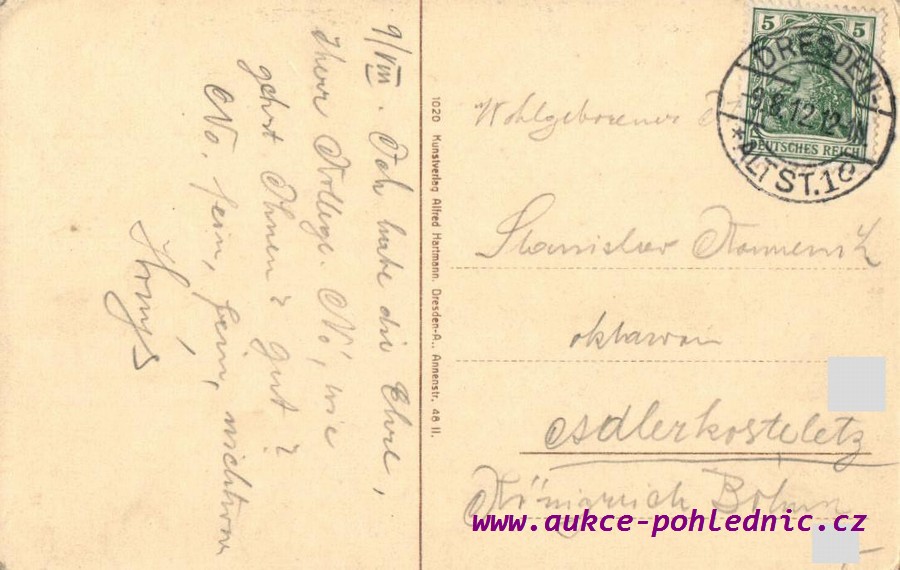 9/VIII. Ich habe die Ehre,
Herr Kollege. Nó, wie
gehts Ihnen? gut?
No. fein, fein, nichtwar
1020 Kunstverlag Alfred Hartmann, Dresden-A., Annenstr. 48 II.
5 5
DEUTSCHES REICH
DRESDEN-
9.8.12.12-
* ALTST.16
Wohlgeborener
Stanislav
oktawan
Adlerkosteletz
Königreich Böhmen
www.aukce-pohlednic.cz